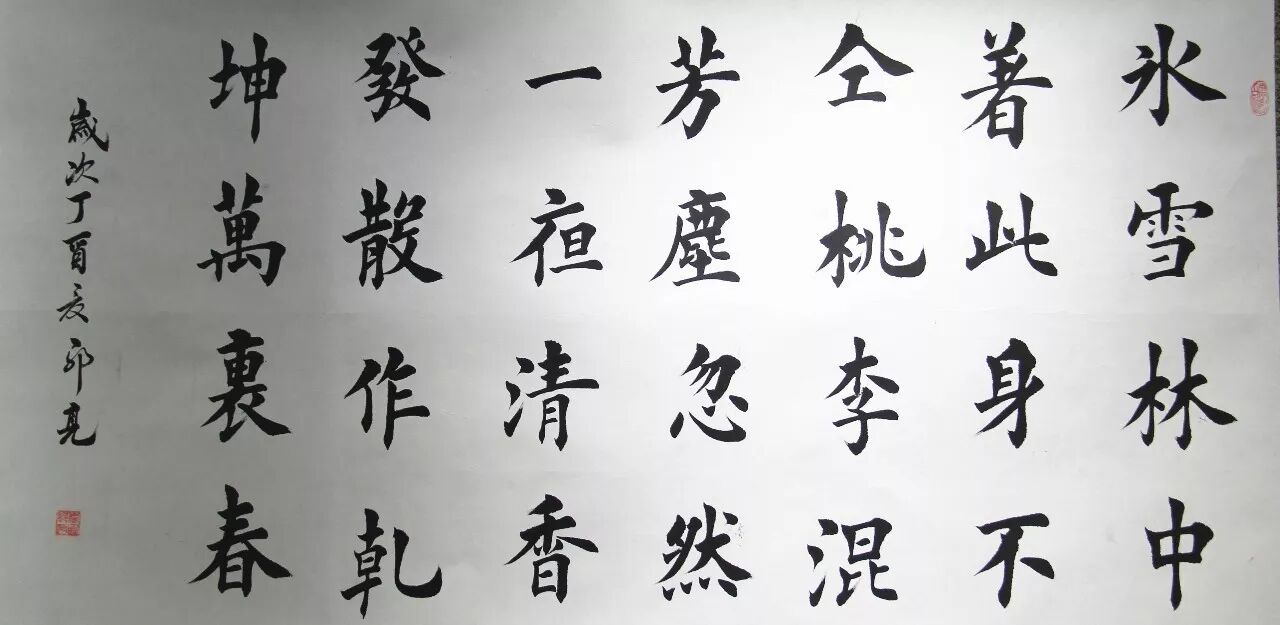 氷雪林中
著此身不
仝桃李混
芳塵忽然
一亱清香
發散作乾
坤萬裏春
歲次丁酉夏亮